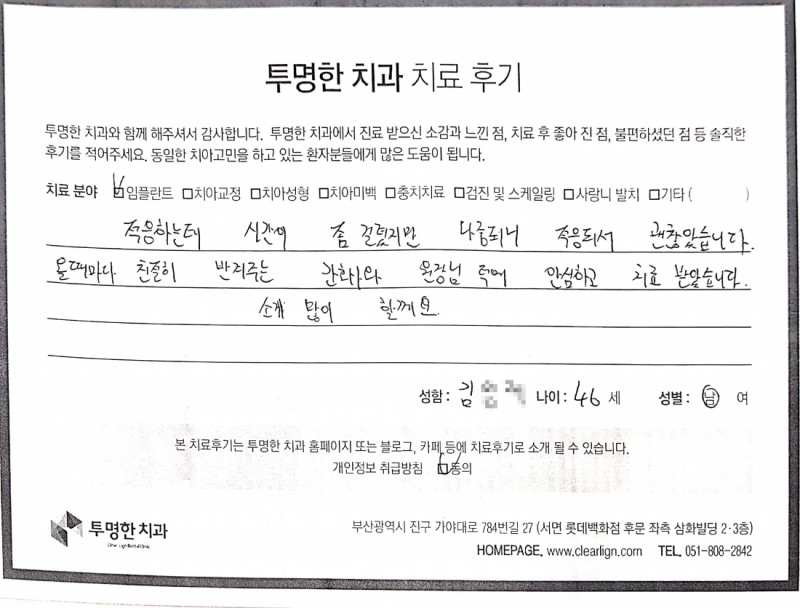 투명한 치과 치료 후기
투명한 치과와 함께 해주셔서 감사합니다. 투명한 치과에서 진료 받으신 소감과 느낀 점, 치료 후 좋아 진 점, 불편하셨던 점 등 솔직한
후기를 적어주세요. 동일한 치아고민을 하고 있는 환자분들에게 많은 도움이 됩니다.
치료 분야 ☑임플란트 □치아교정 □치아성형 □치아미백 □충치치료 □검진 및 스케일링 □사랑니 발치 □기타 ( )
적응하는데 시간이 좀 걸렸지만 나중되니 적응되서 괜찮았습니다.
올때마다 친절히 반겨주는 간호사와 원장님 덕에 안심하고 치료 받았습니다.
소개 많이 할께요
성함 : 김 나이 : 46 세 성별 : 남 여
본 치료후기는 투명한 치과 홈페이지 또는 블로그, 카페 등에 치료후기로 소개 될 수 있습니다.
개인정보 취급방침 ☑동의
투명한 치과
부산광역시 진구 가야대로 784번길 27 (서면 롯데백화점 후문 좌측 삼화빌딩 2·3층)
HOMEPAGE. www.clearlign.com TEL. 051-808-2842